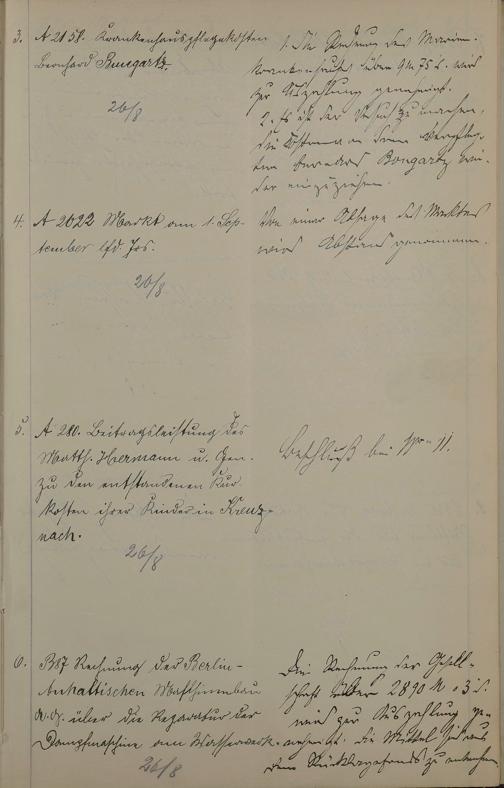 3. A 2158. Krankenhauspflegekosten
Bernhard Bongartz.
26/8
1. Die Rechnung des Marien-
Krankenhauses über 9 M 75 S. wird
zur Auszahlung genehmigt.
2. Es ist der Versuch zu machen,
die Kosten von dem
Bongartz wie-
der einzuziehen.
4. A 2022 Markt am 1. Sep-
tember lfd. Jrs.
26/8
Von einer Absage des Marktes
wird Abstand genommen.
5. A 280. Beitragsleistung des
Matth. Hermann u. Gen.
zu den entstandenen Kur-
kosten ihrer Kinder in Kreuz-
nach.
26/8
Beschluß bei Nro 11.
6. B87 Rechnung der Berlin-
Anhaltischen Maschinenbau
A. G. über die Reparatur der
Dampfmaschine am Wasserwerk.
26/8
Die Rechnung der Gesell-
schaft über 2890 M 03 S.
wird zur Auszahlung ge-
nehmigt. Die Mittel sind aus
dem Rücklagefonds zu entnehmen